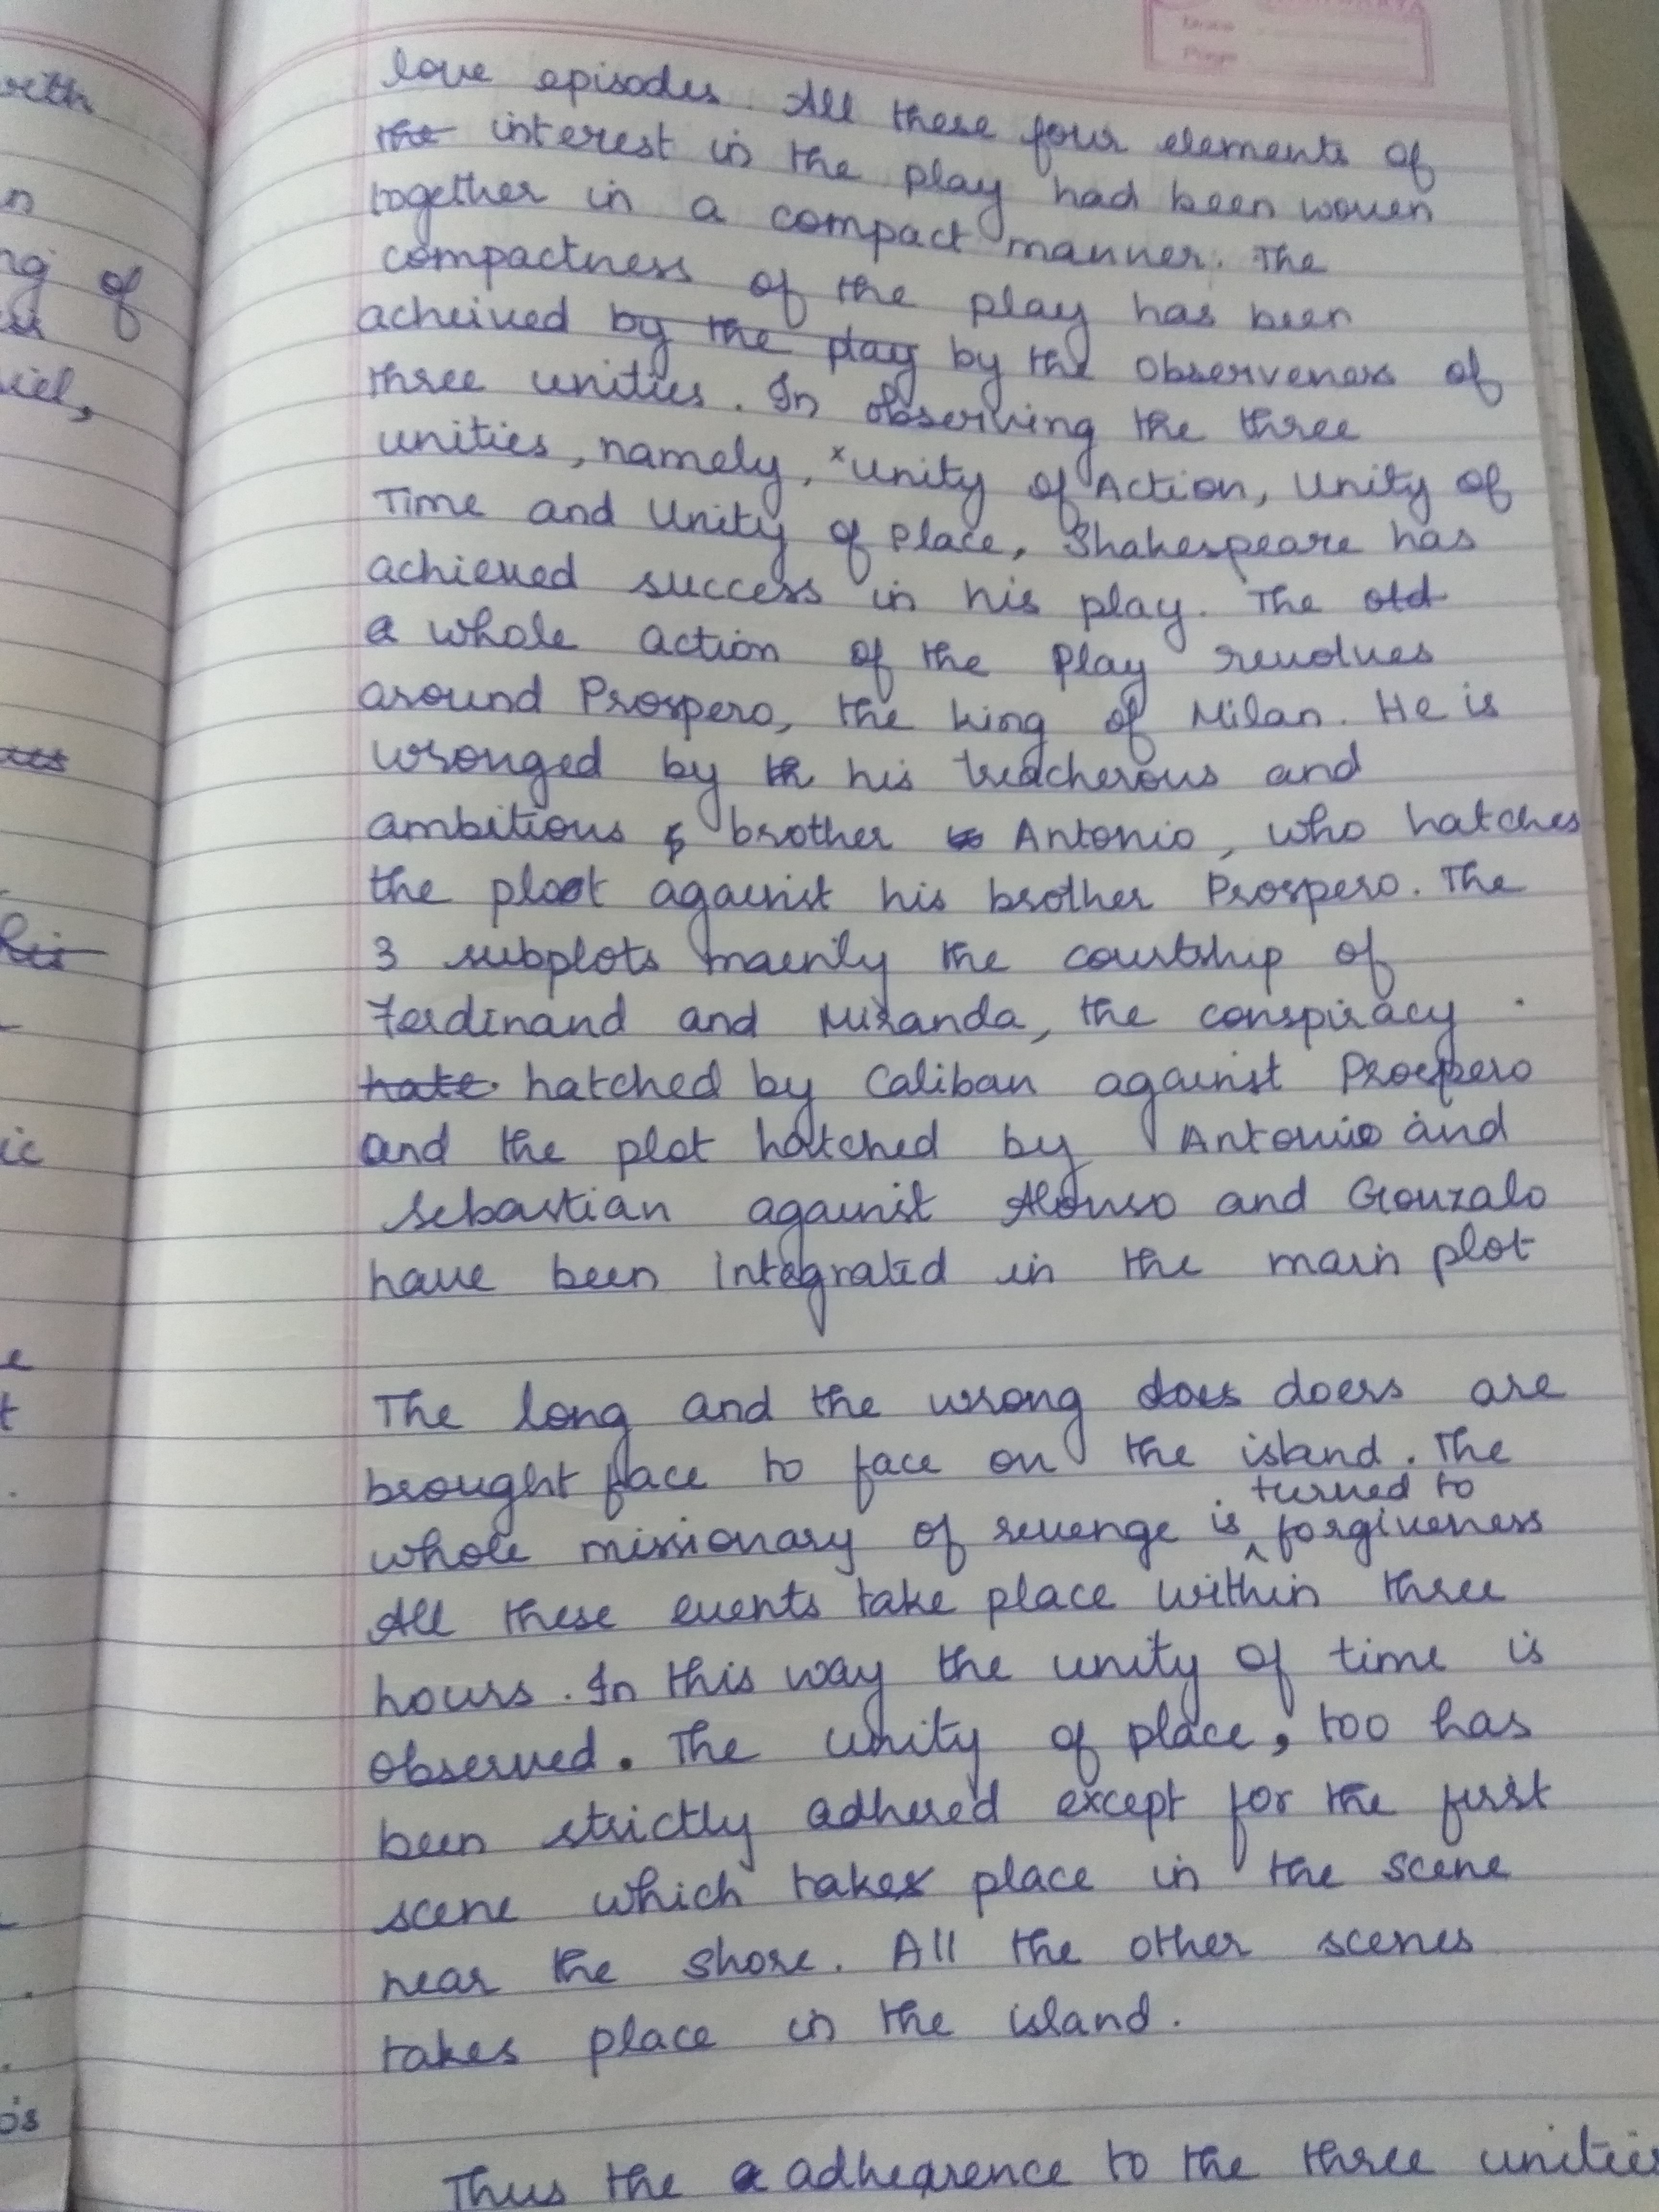 love episodes. All these four elements of
the interest in the play had been woven
together in a compact manner. The
compactness of the play has been
acheived by the play by the observeness of
three unities. In observing the three
unities, namely, Unity of Action, Unity of
Time and Unity of Place, Shakespeare has
achieved success in his play. The old
a whole action of the play revolves
around Prospero, the king of Milan. He is
wronged by th his treacherous and
ambitious brother Antonio, who hatches
the plot against his brother Prospero. The
3 subplots mainly the courtship of
Ferdinand and Miranda, the conspiracy
hate hatched by Caliban against Prospero
and the plot hatched by Antonio and
Sebastian against Alonso and Gonzalo
have been integrated in the main plot
The long and the wrong does doers are
brought face to face on the island. The
turned to
whole missionary of revenge is ^ forgiveness
All these events take place within three
hours. In this way the unity of time is
observed. The unity of place, too has
been strictly adhered except for the first
scene which takes place in the scene
near the shore. All the other scenes
takes place in the island.
Thus the a adhearence to the three unities
with
n
ng of
iel,
ic
e
t